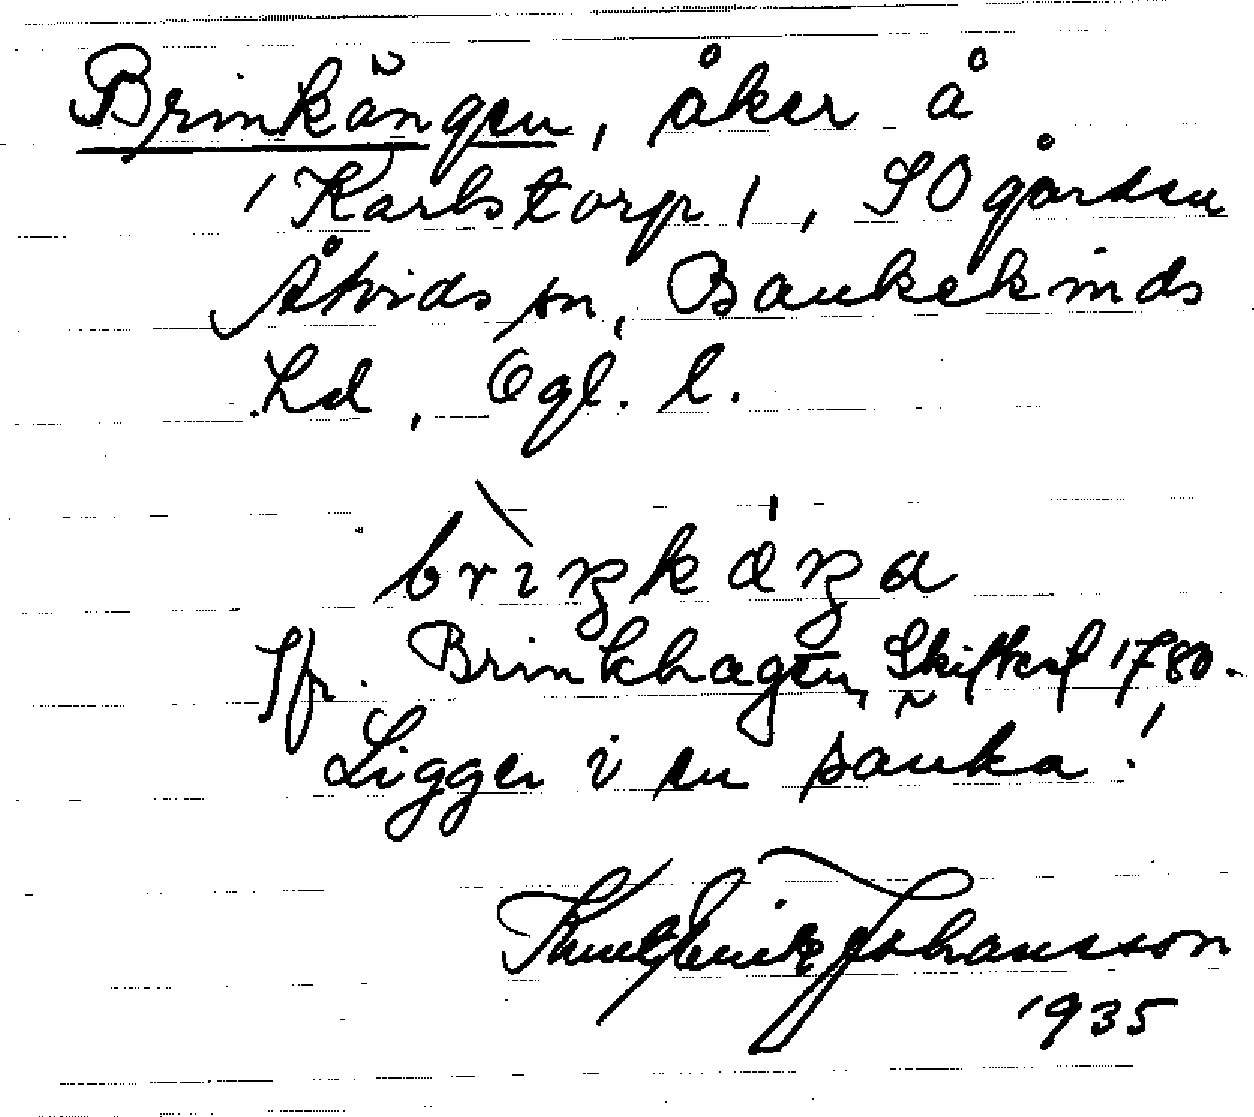 Brinkängen, åker å
/Karlstorp/, SO gården
Åtvids sn, Bankekinds
hd, Ögl. l.
brìŋkáŋa
Jfr. Brinkhagen, Skifteskf 1780.
Ligger i en sänka!
Knut Erik Johansson
1935